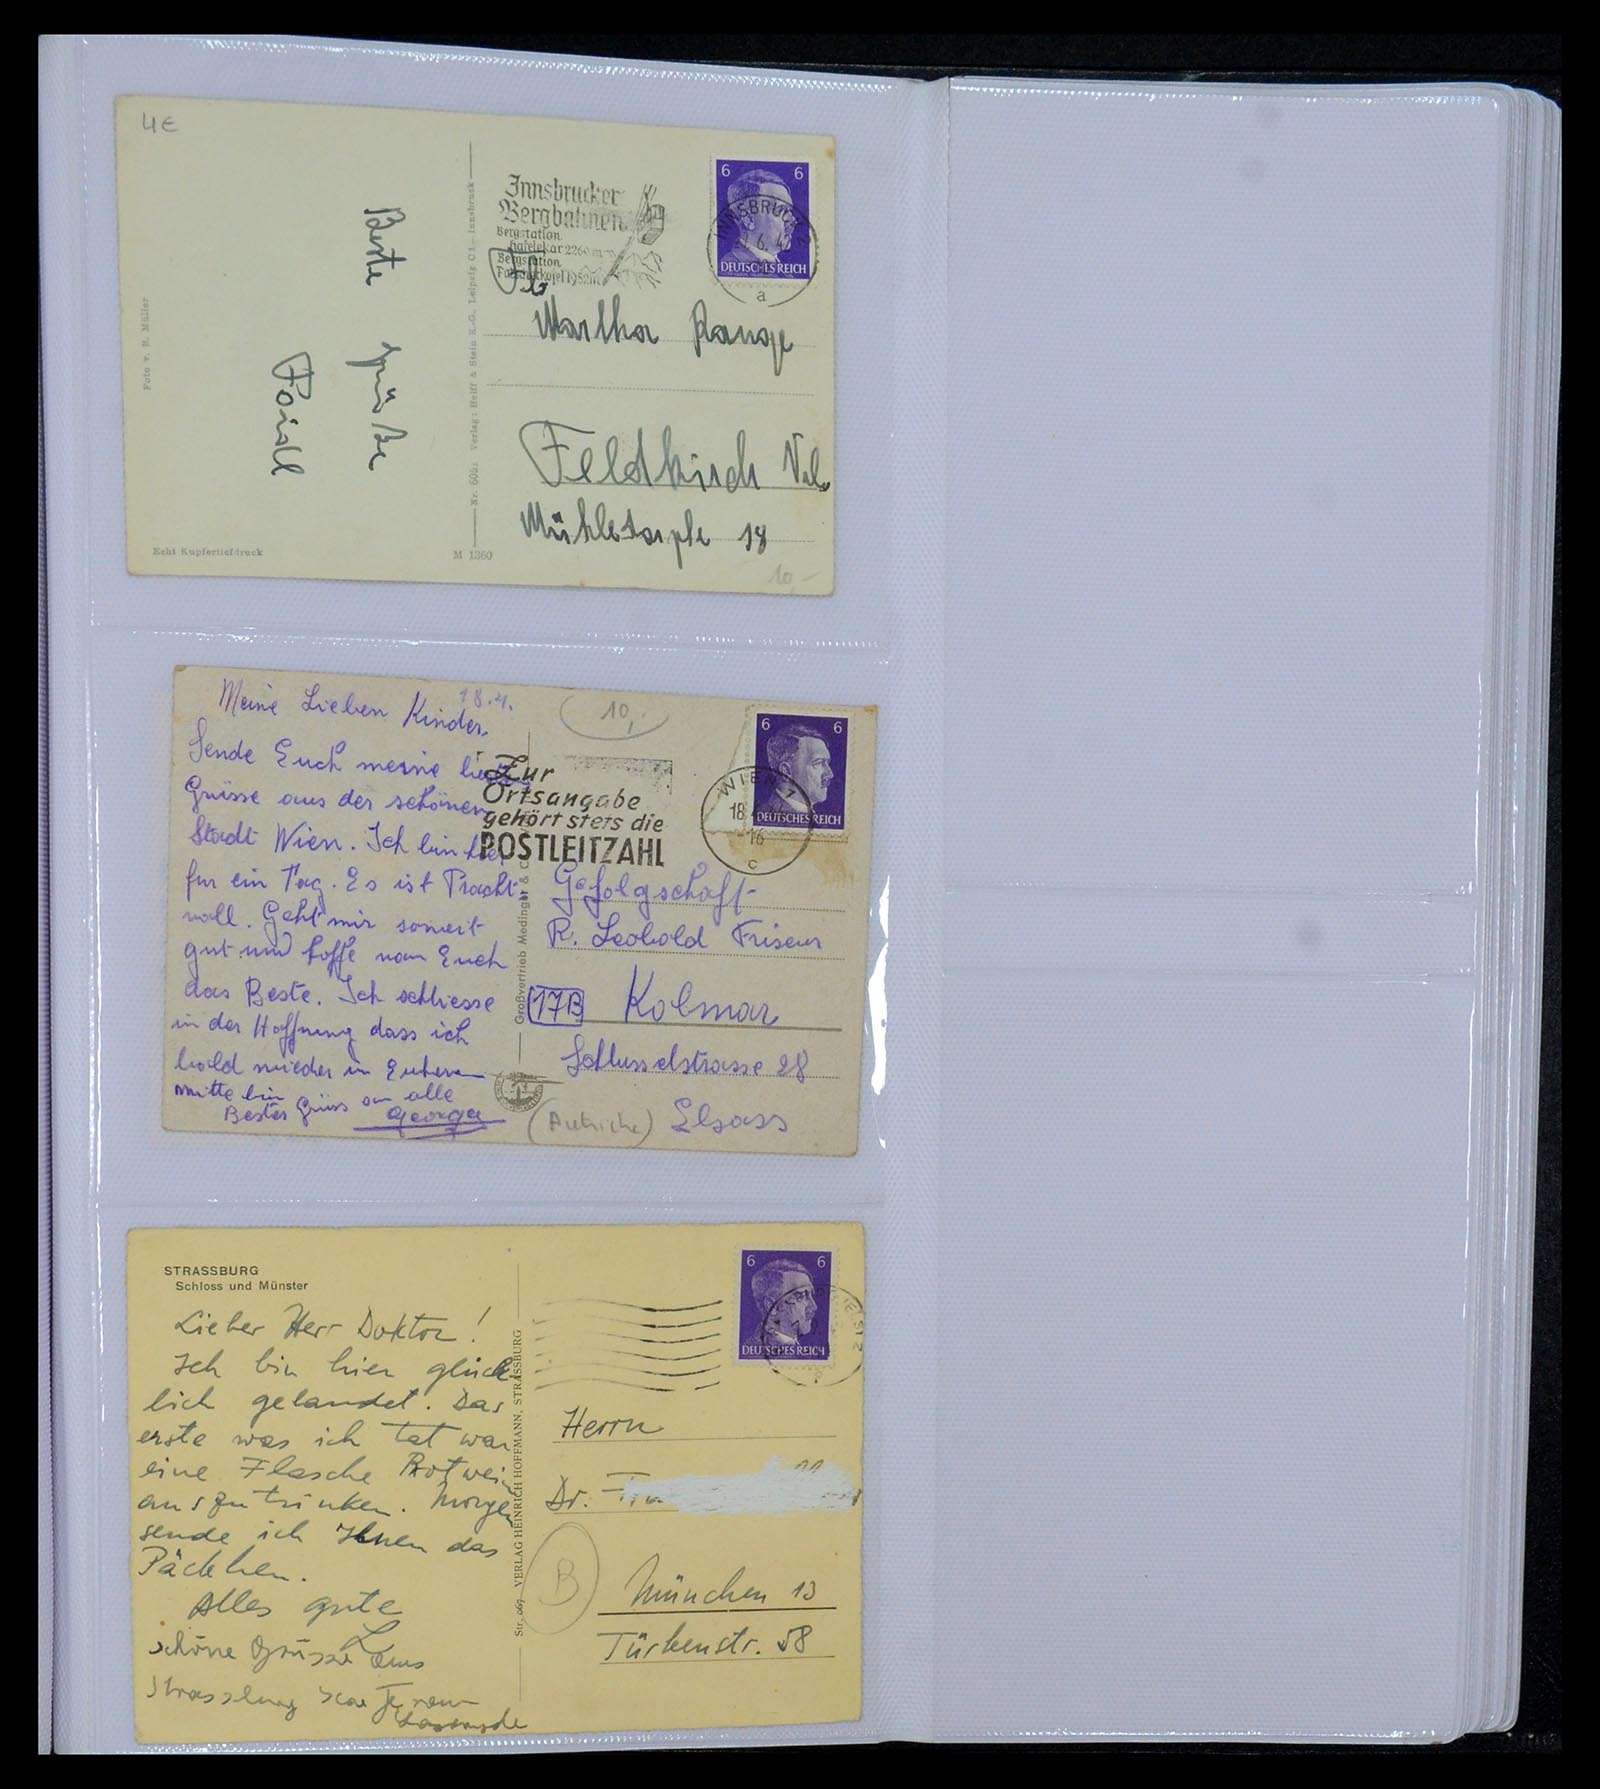 4€
Innsbrucker
Bergbahnen
Bergstation
Hafelekar 2260 m
Bergstation
6 6
DEUTSCHES REICH
INNSBRUCK 2
a
Martha Range
Feldkirch
18
10,-
Beste Grüße
Poidl
Foto v. R. Müller
Echt Kupfertiefdruck
M 1360
Verlag: Helff & Stein K.-G., Leipzig C1 - Innsbruck
18.4.
10,-
Meine Lieben Kinder
Sende Euch meine
Grüsse aus der schönen
Stadt Wien. Ich bin hier
für ein Tag. Es ist Pracht
voll. Geht mir soweit
gut und hoffe von Euch
das Beste. Ich schliesse
in der Hoffnung dass ich
bald wieder in Euherem
mitte bin
Bester Grüss an alle
George
Zur
Ortsangabe
gehört stets die
POSTLEITZAHL
6 6
DEUTSCHES REICH
WIEN
18
16
c
Großvertrieb Medinger &
Gefolgschaft
R. Leobold Friseur
17B Kolmar
Schlusselstrasse 28
(Autriche) Elsass
STRASSBURG
Schloss und Münster
Lieber Herr Doktor!
Ich bin hier glück
lich gelandet. Das
erste was ich tat war
eine Flasche Rotwein
auszutrinken. Morgen
sende ich Ihnen das
Päckchen.
Alles gute
schöne Grüsse aus
Strassburg
Str. 067 VERLAG HEINRICH HOFFMANN, STRASSBURG
6 6
DEUTSCHES REICH
Herrn
Dr.
B
München 13
Türkenstr. 58